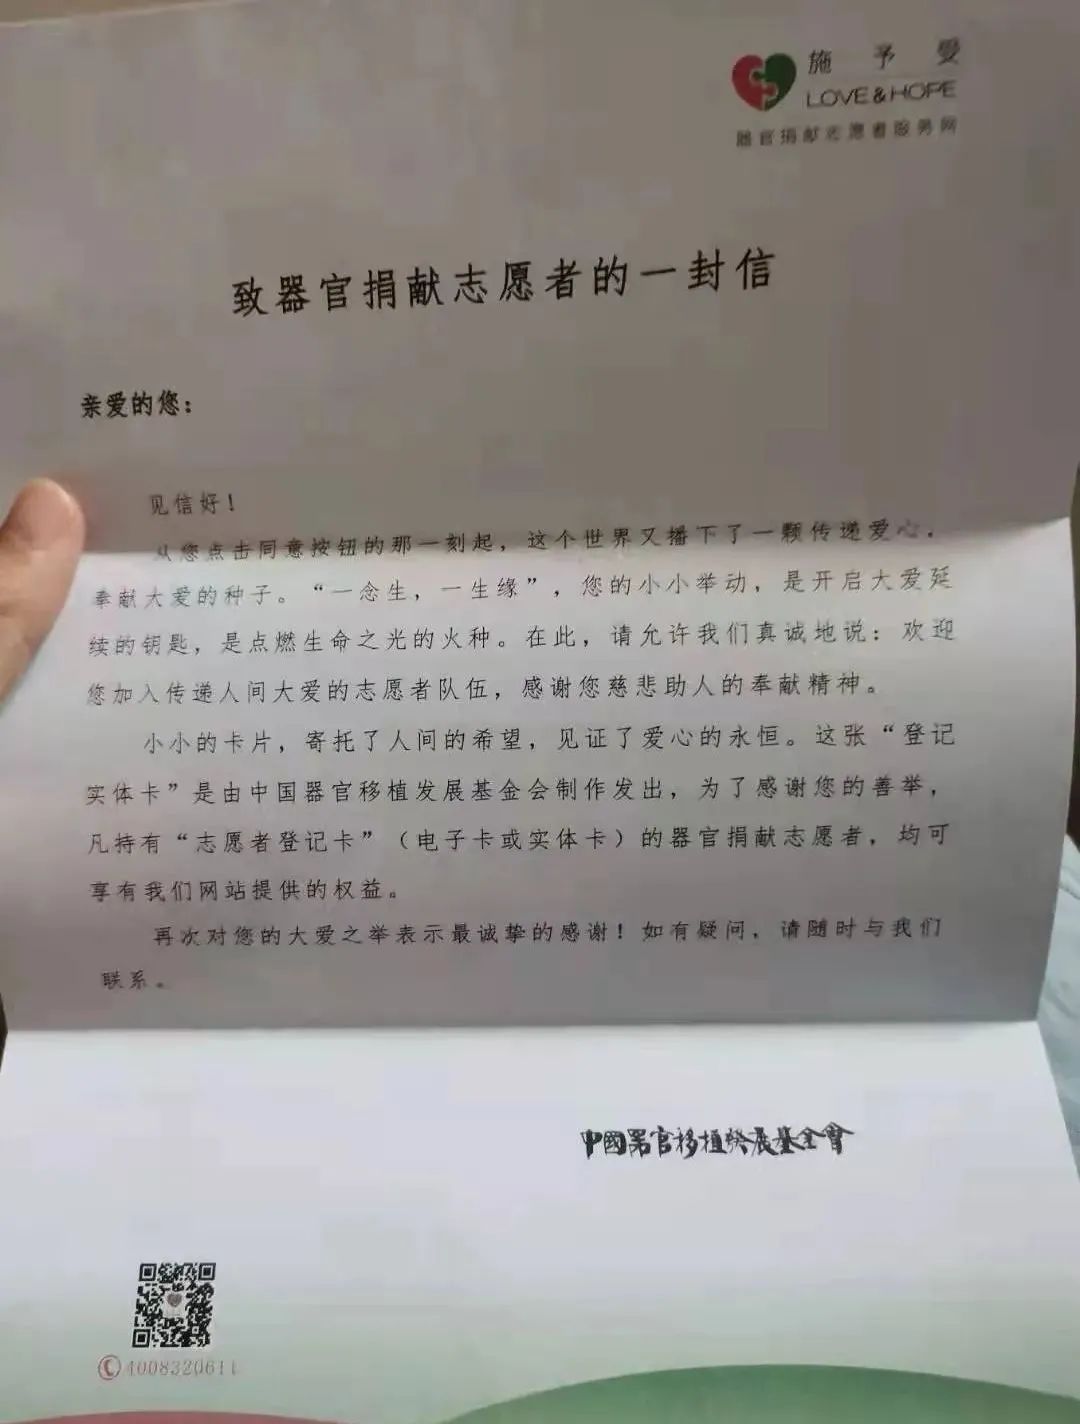 施予受
LOVE&HOPE
器官捐献志愿者服务网
致器官捐献志愿者的一封信
亲爱的您：
见信好！
从您点击同意按钮的那一刻起，这个世界又播下了一颗传递爱心，
奉献大爱的种子。“一念生，一生缘”，您的小小举动，是开启大爱延
续的钥匙，是点燃生命之光的火种。在此，请允许我们真诚地说：欢迎
您加入传递人间大爱的志愿者队伍，感谢您慈悲助人的奉献精神。
小小的卡片，寄托了人间的希望，见证了爱心的永恒。这张“登记
实体卡”是由中国器官移植发展基金会制作发出，为了感谢您的善举，
凡持有“志愿者登记卡”（电子卡或实体卡）的器官捐献志愿者，均可
享有我们网站提供的权益。
再次对您的大爱之举表示最诚挚的感谢！如有疑问，请随时与我们
联系。
中國器官移植發展基金會
4008320611